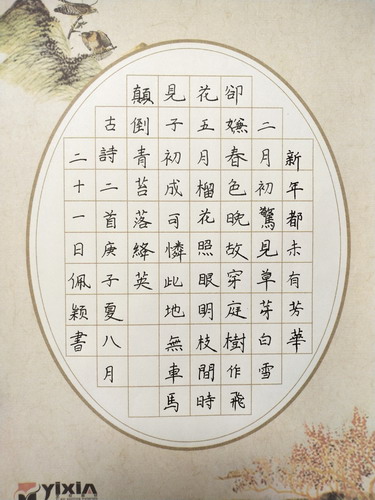 新年都未有芳華
二月初驚見草芽白雪
卻嫌春色晚故穿庭樹作飛
花五月榴花照眼明枝間時
見子初成可憐此地無車馬
顛倒青苔落絳英
古詩二首庚子夏八月
二十一日佩穎書